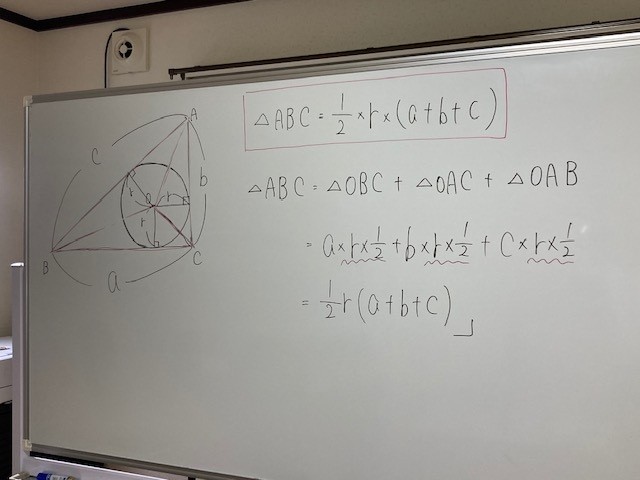 A
B
C
a
b
c
O
r
r
r
△ABC = 1/2 × r × (a+b+c)
△ABC = △OBC + △OAC + △OAB
= a×r×1/2 + b×r×1/2 + c×r×1/2
= 1/2 r(a+b+c)